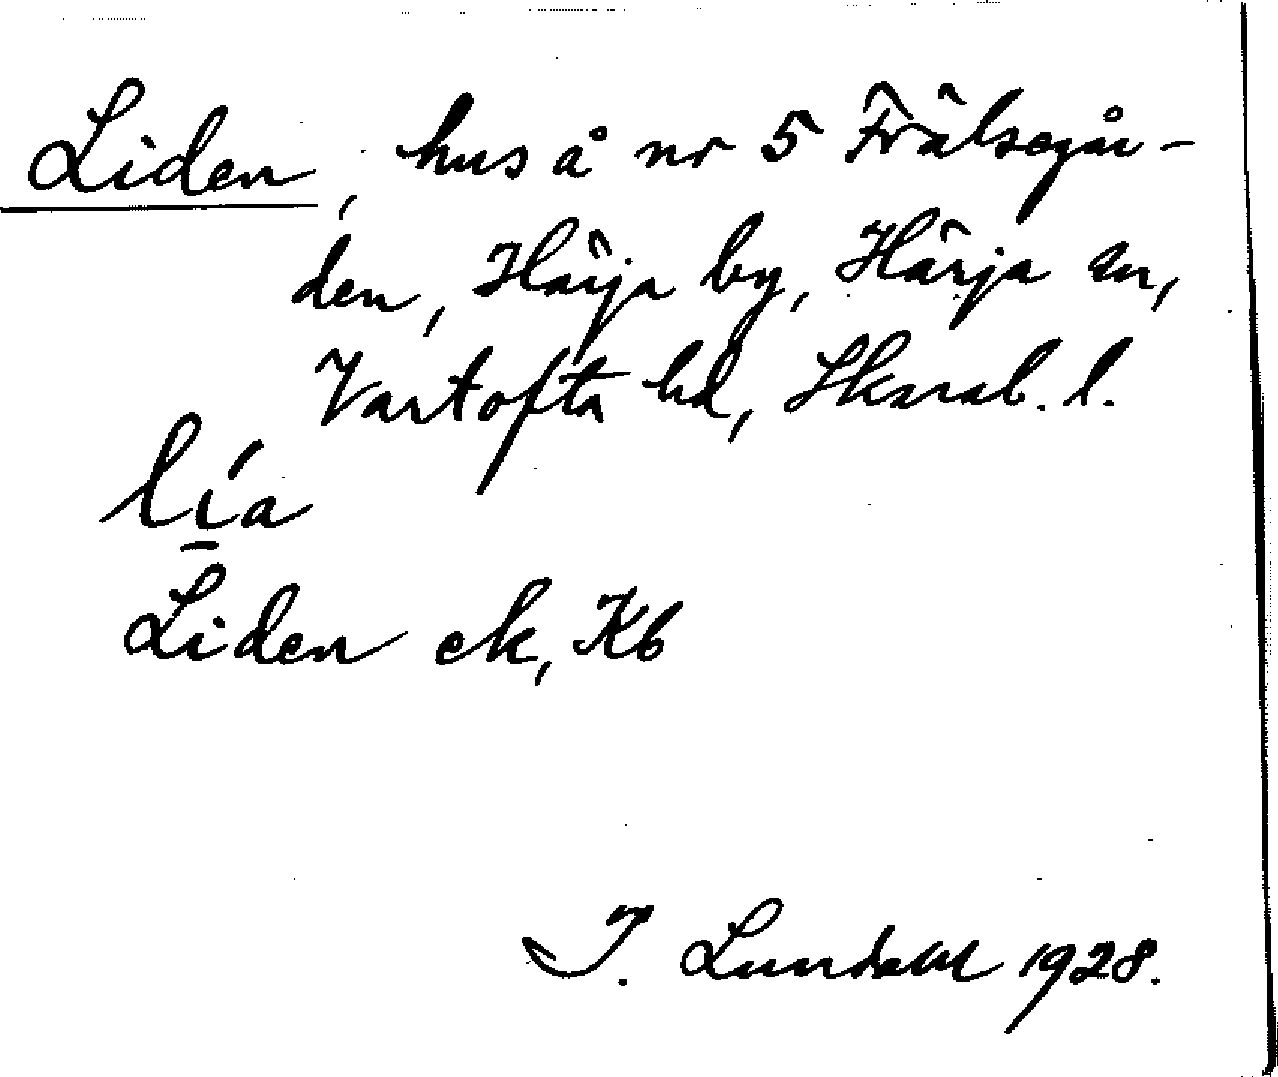 Liden, hus å nr 5 Frälsegår-
den, Härja by, Härja sn,
Vartofta hd, Skarab. l.
lí̱a
Liden ek, Kb
I. Lundahl 1928.